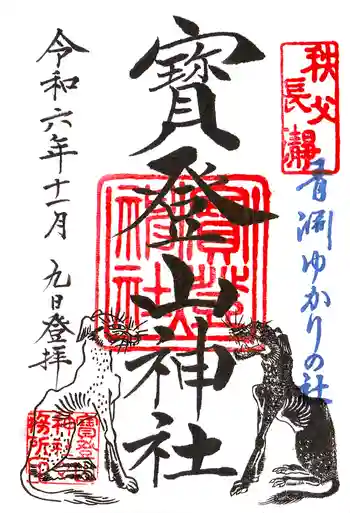 秩父
長瀞
青淵ゆかりの社
寳登山神社
寳登山神社
令和六年十一月 九日登拝
寳登山
神社
務所印